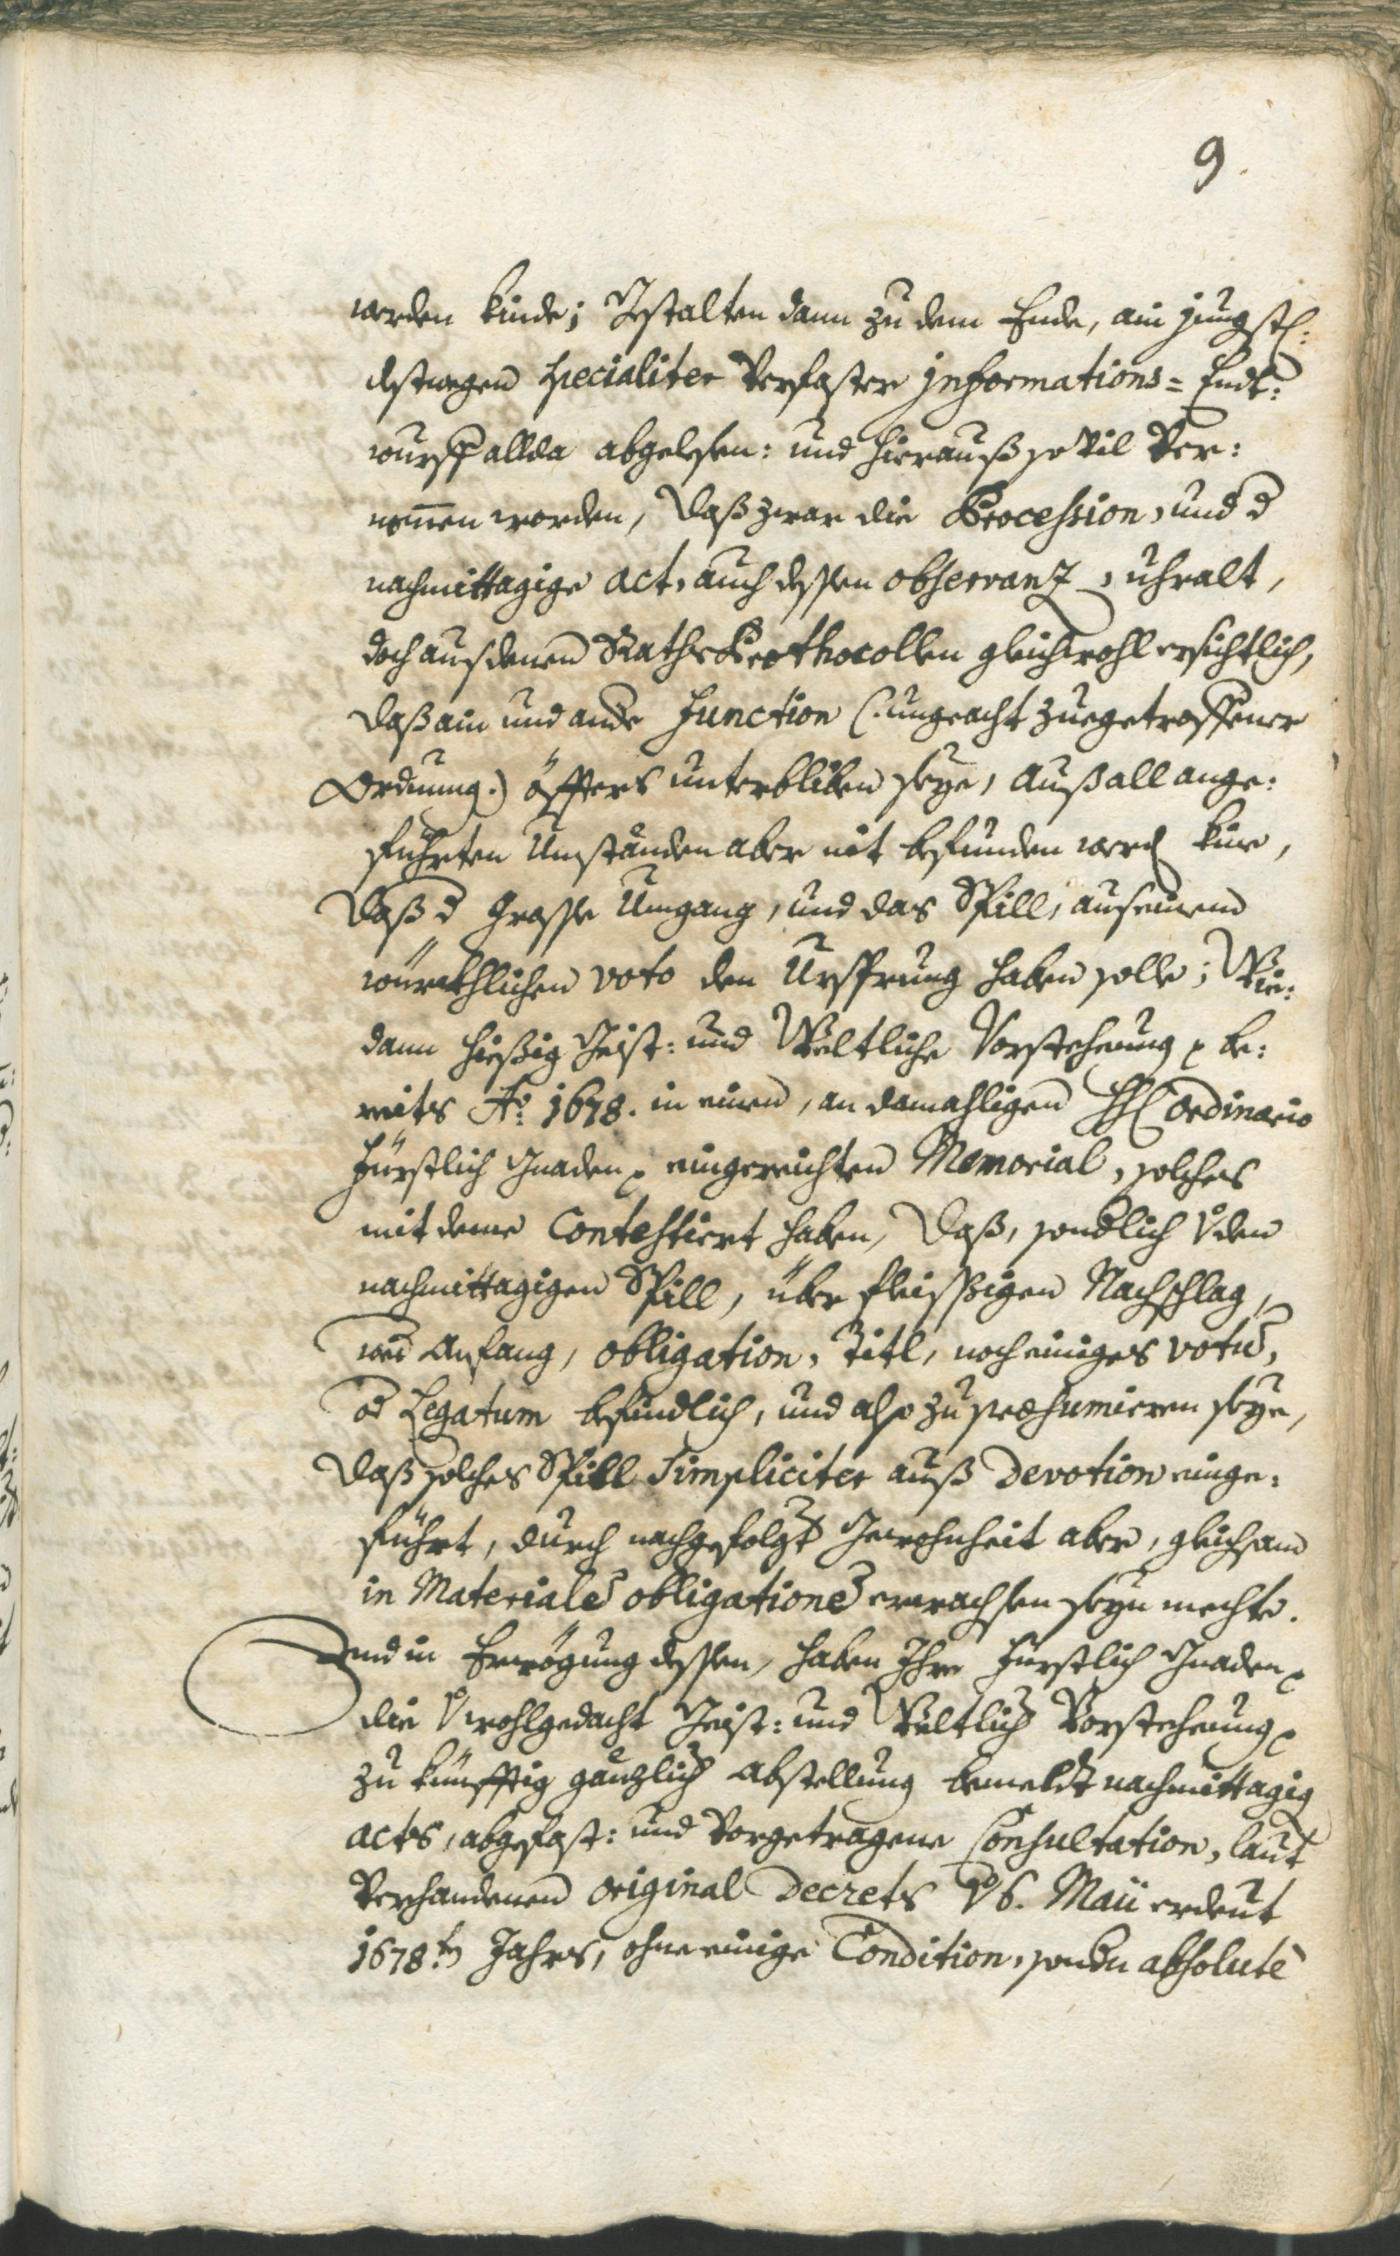 9.
werden kinde; Gstalten dann zu dem Ende, ain jungstl:
destwegen specialiter Verfaster jnformations= Endt:
wurff allda abgelesen: und hierauß so Vil Ver:
nom̅en worden, daß zwar die Procession, und d
nachmittagige act, auch dessen observanz, uhralt,
doch aus denen Raths Prothocollen gleichwohl ersichtlich,
daß ain und ande function (: ungeacht zuegetroffener
Ordnung:) öffters unterbliben seye, Auß all ange:
führten Umständen aber nit befunden werd kine,
daß d Grosse Umgang, und das Spill, aus einem
würckhlichen voto den Ursprung haben solle; Wie:
dann hießig Geist: und Weltliche Vorstehung be:
reits Aõ: 1678. in einen, an damahligen H: Ordinario
Fürstlich Gnaden eingereichten Memorial, solches
mit deme Contestiert haben, daß, sondlich Vo den
nachmittagigen Spill, über fleissigen Nachschlag,
wed Anfang, obligation, Titl, noch einiges votũ,
od Legatum befindlich, und also zu præsumieren seye,
daß solches Spill Simpliciter auß Devotion einge:
führt, durch nachgefolgt Gewohnheit aber, gleichsam
in Materialẽ obligationẽ erwachsen seyn mechte.
Und in Erwögung dessen, haben Ihre Fürstlich Gnaden
die Vo wohlgedacht Geist: und Weltlich Vorstehung
zu künfftig gänzlich Abstellung bemeldt nachmittagig
acts, abgefast: und Vorgetragene Consultation, laut
Verhandenen original Decrets Vo 6. Maii erdeut
1678.tn Jahrs, ohne einige Condition, sondn absolutè